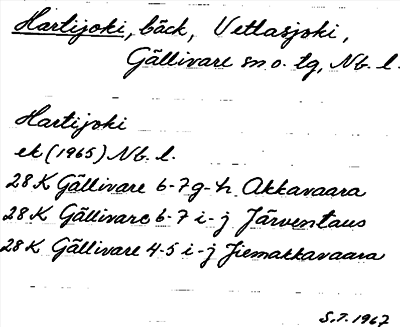 Hartijoki, bäck, Vettasjoki,
Gällivare sn o. tg, Nb. l.
Hartijoki
ek (1965) Nb. l.
28K Gällivare 6-7 g-h Akkavaara
28K Gällivare 6-7 i-j Järventaus
28K Gällivare 4-5 i-j Jiemakkavaara
S.T. 1967